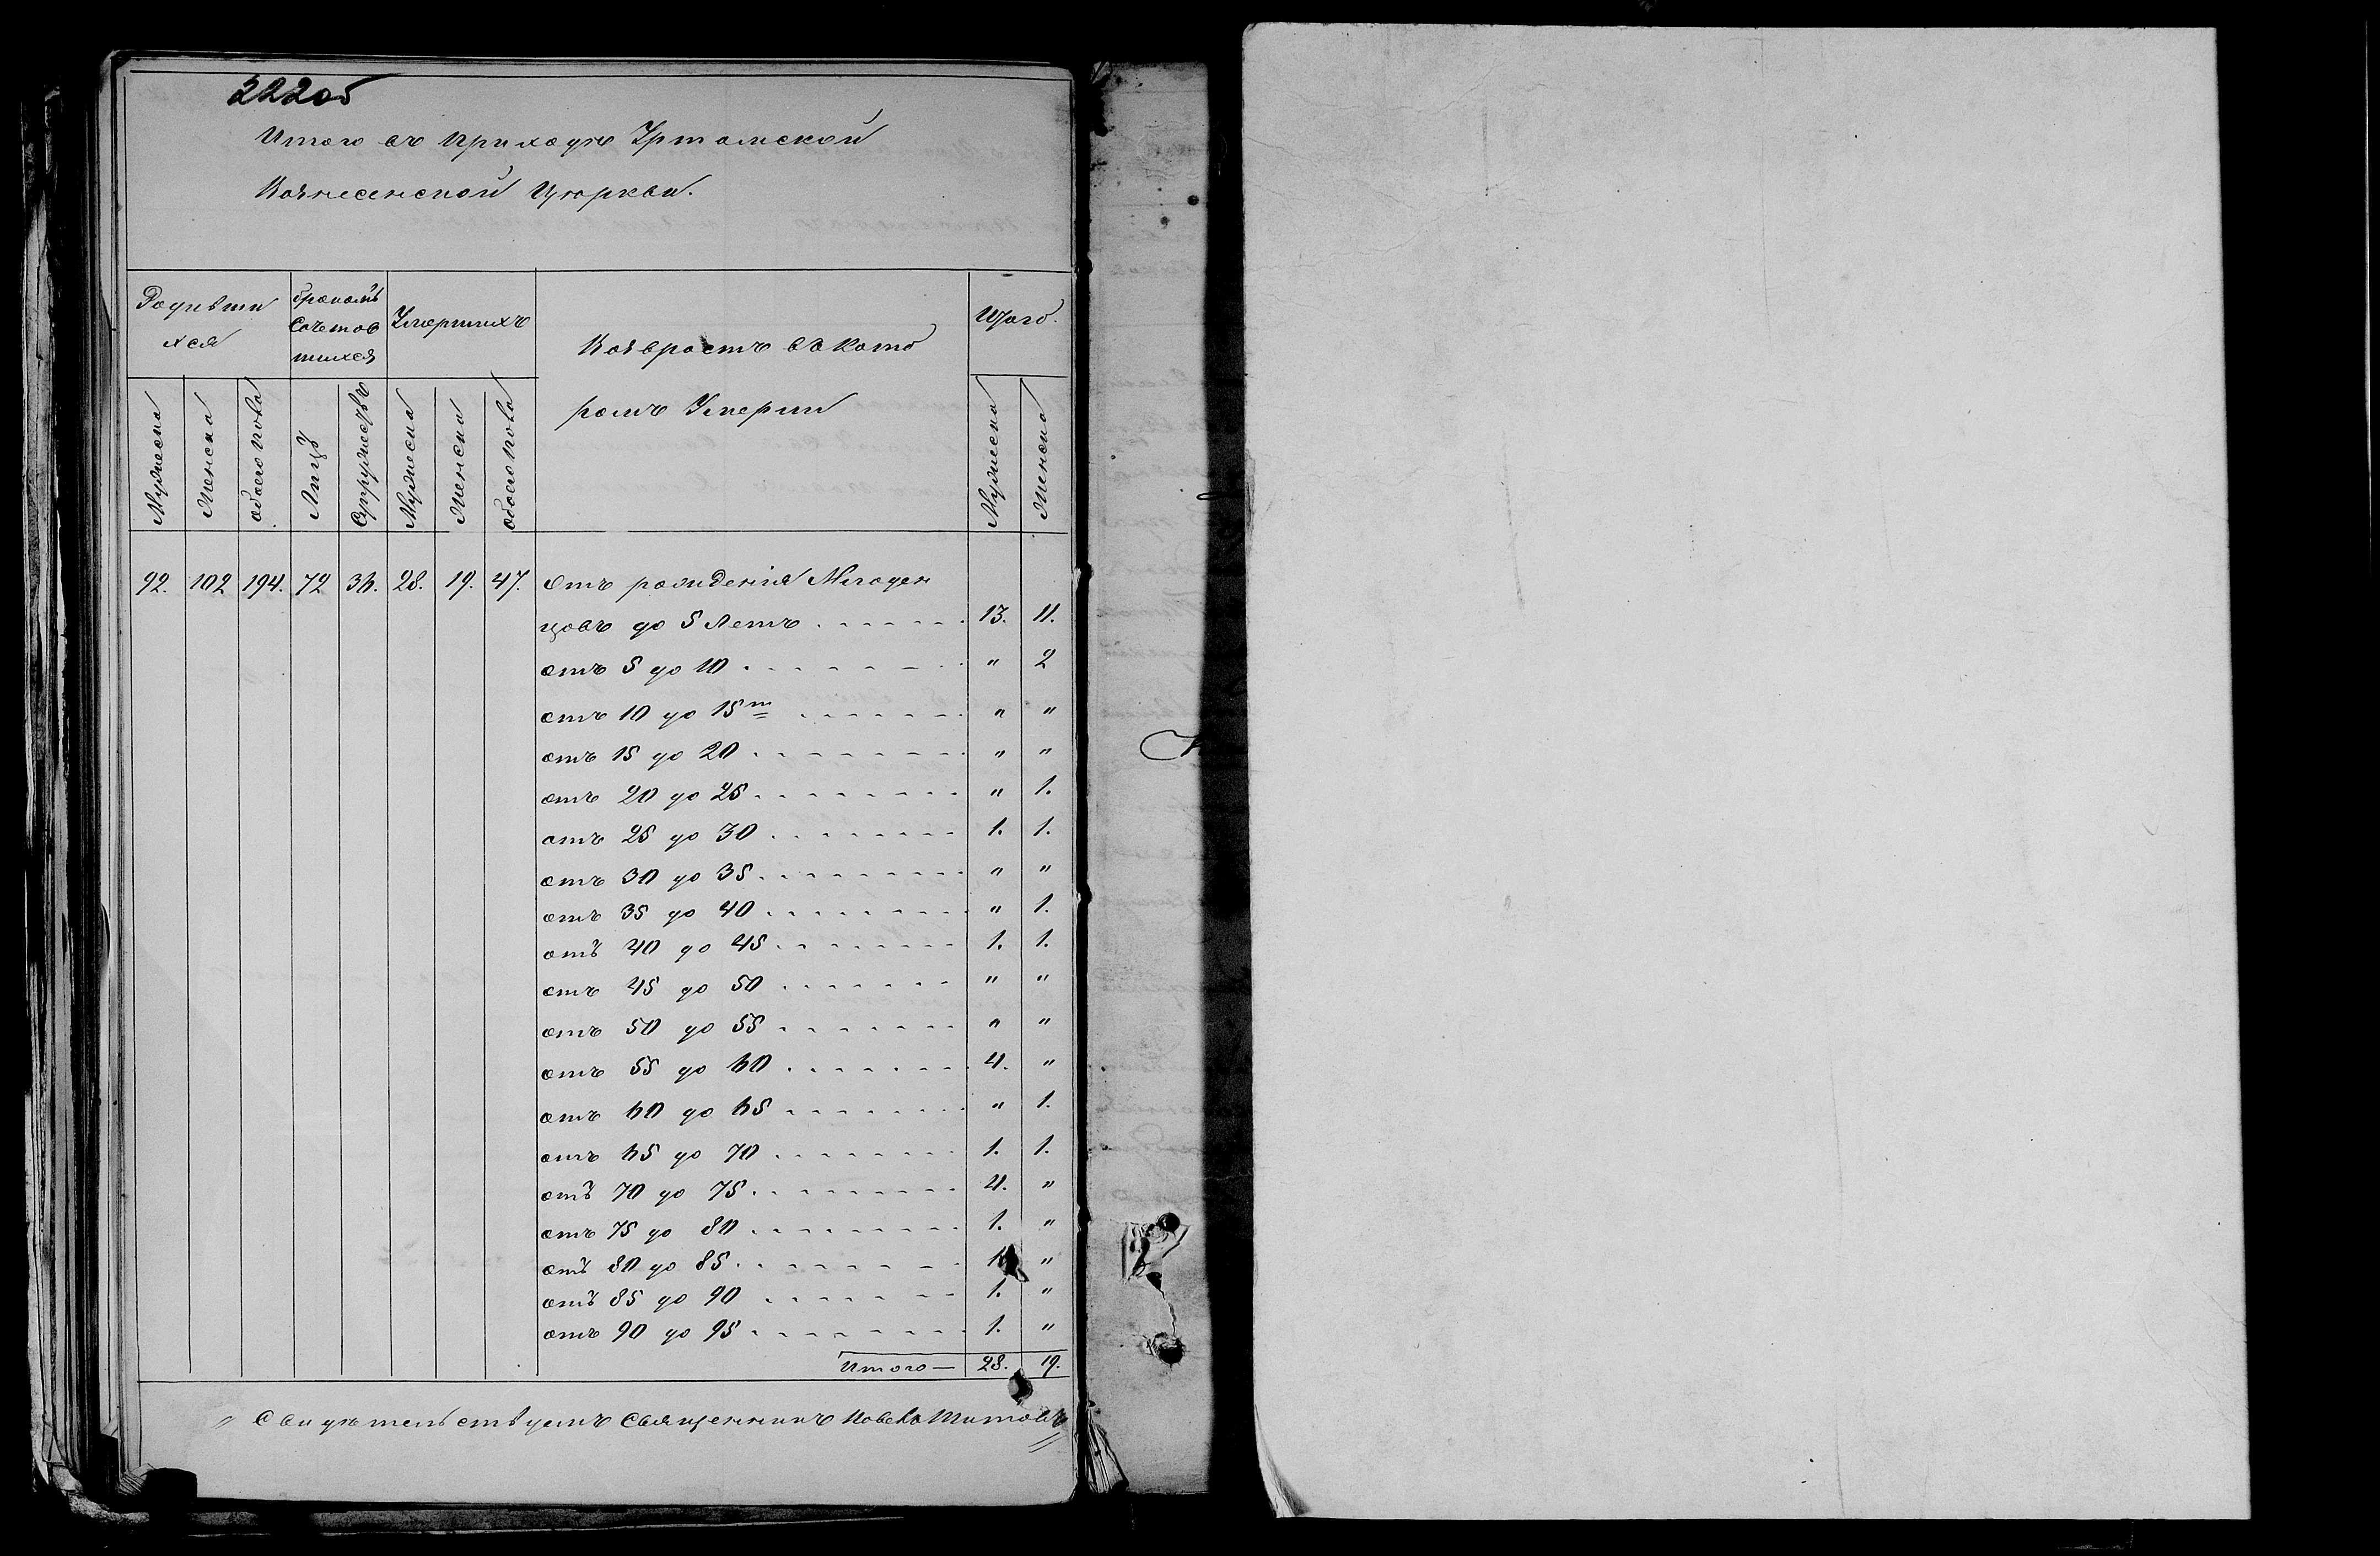 222об
Итого въ приходѣ Уртамской
Вознесенской Церкви.
Родивши
хся
бракомъ
Сочетав
шихся
Умершихъ
Возврастъ въ кото
ромъ Умерли
Итого.
Мужеска
Женска
обоего пола
Лицъ
Супружествъ
Мужеска
Женска
обоего пола
Мужеска
Женска
92. 102 194. 72 36. 28. 19. 47. Отъ рожденія Младен
цовъ до 5 летъ 13. 11.
отъ 5 до 10 " 2
отъ 10 до 15т " "
отъ 15 до 20 " "
отъ 20 до 25 " 1.
отъ 25 до 30 1. 1.
отъ 30 до 35 " "
отъ 35 до 40 " 1.
отъ 40 до 45 1. 1.
отъ 45 до 50 " "
отъ 50 до 55 " "
отъ 55 до 60 4. "
отъ 60 до 65 " 1.
отъ 65 до 70 1. 1.
отъ 70 до 75 4. "
отъ 75 до 80 1. "
отъ 80 до 85 1 "
отъ 85 до 90 1. "
отъ 90 до 95 1. "
Итого — 28. 19.
" Свидѣтельствуемъ Священникъ Павелъ Титовъ